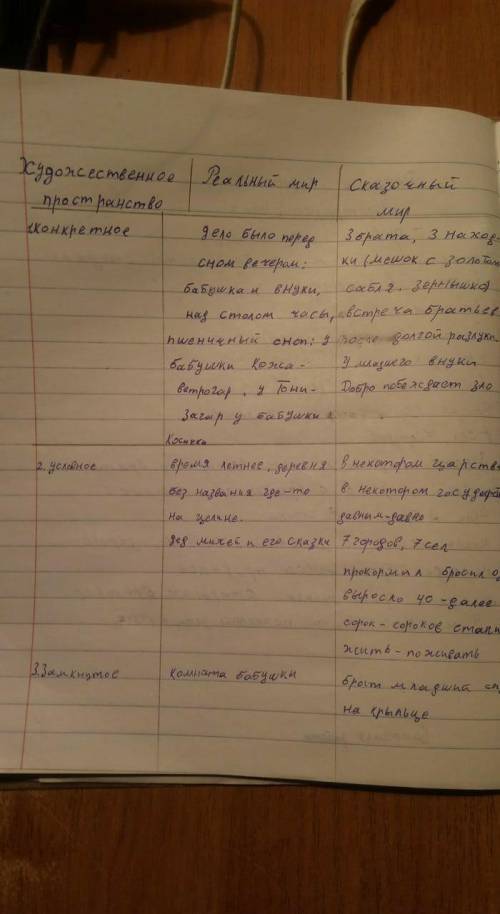 Художественное пространство
Реальный мир
Сказочный мир
1конкретное
дело было перед
сном вечером:
бабушка и внуки,
над столом часы,
пшеничный сноп; у
бабушки кожа-
ветрогар, у Тони-
Загар у бабушки
Косички
3 брата, 3 наход-
ки (мешок с золотом
сабля, зернышко)
встреча братьев
после долгой разлуки
У младшего внуки
Добро побеждает зло
2. условное
время летнее, деревня
без названия где-то
на целине.
дед михей и его сказки
в некотором царств
в некотором государ
давным-давно
7 городов, 7 сел
прокормил бросил
выросло 40-далее
сорок-сороков
жить-поживать
3.Замкнутое
комната бабушки
брат младший
на крыльце